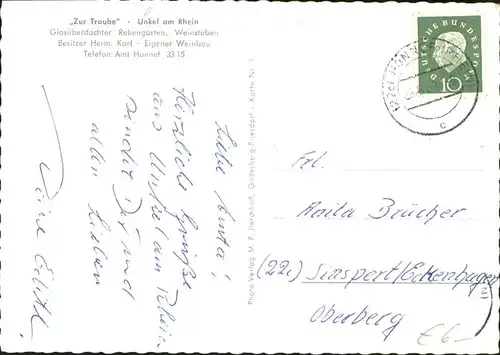 „Zur Traube" · Unkel am Rhein
Glasüberdachter Rebengarten, Weinstuben
Besitzer Herm. Karl - Eigener Weinbau
Telefon Amt Honnef 3315
DEUTSCHE BUNDESPOST
10
Photo-Verlag M. P.
Godesberg-Friesdorf - Karte Nr.
Liebe Anita!
Herzliche Grüße
aus Unkel am Rhein
sendet Dir und
allen Lieben
Deine Edith.
Frl.
Anita Brücher
(22c) Sinspert/Eckenhagen
Oberberg
€ 6-